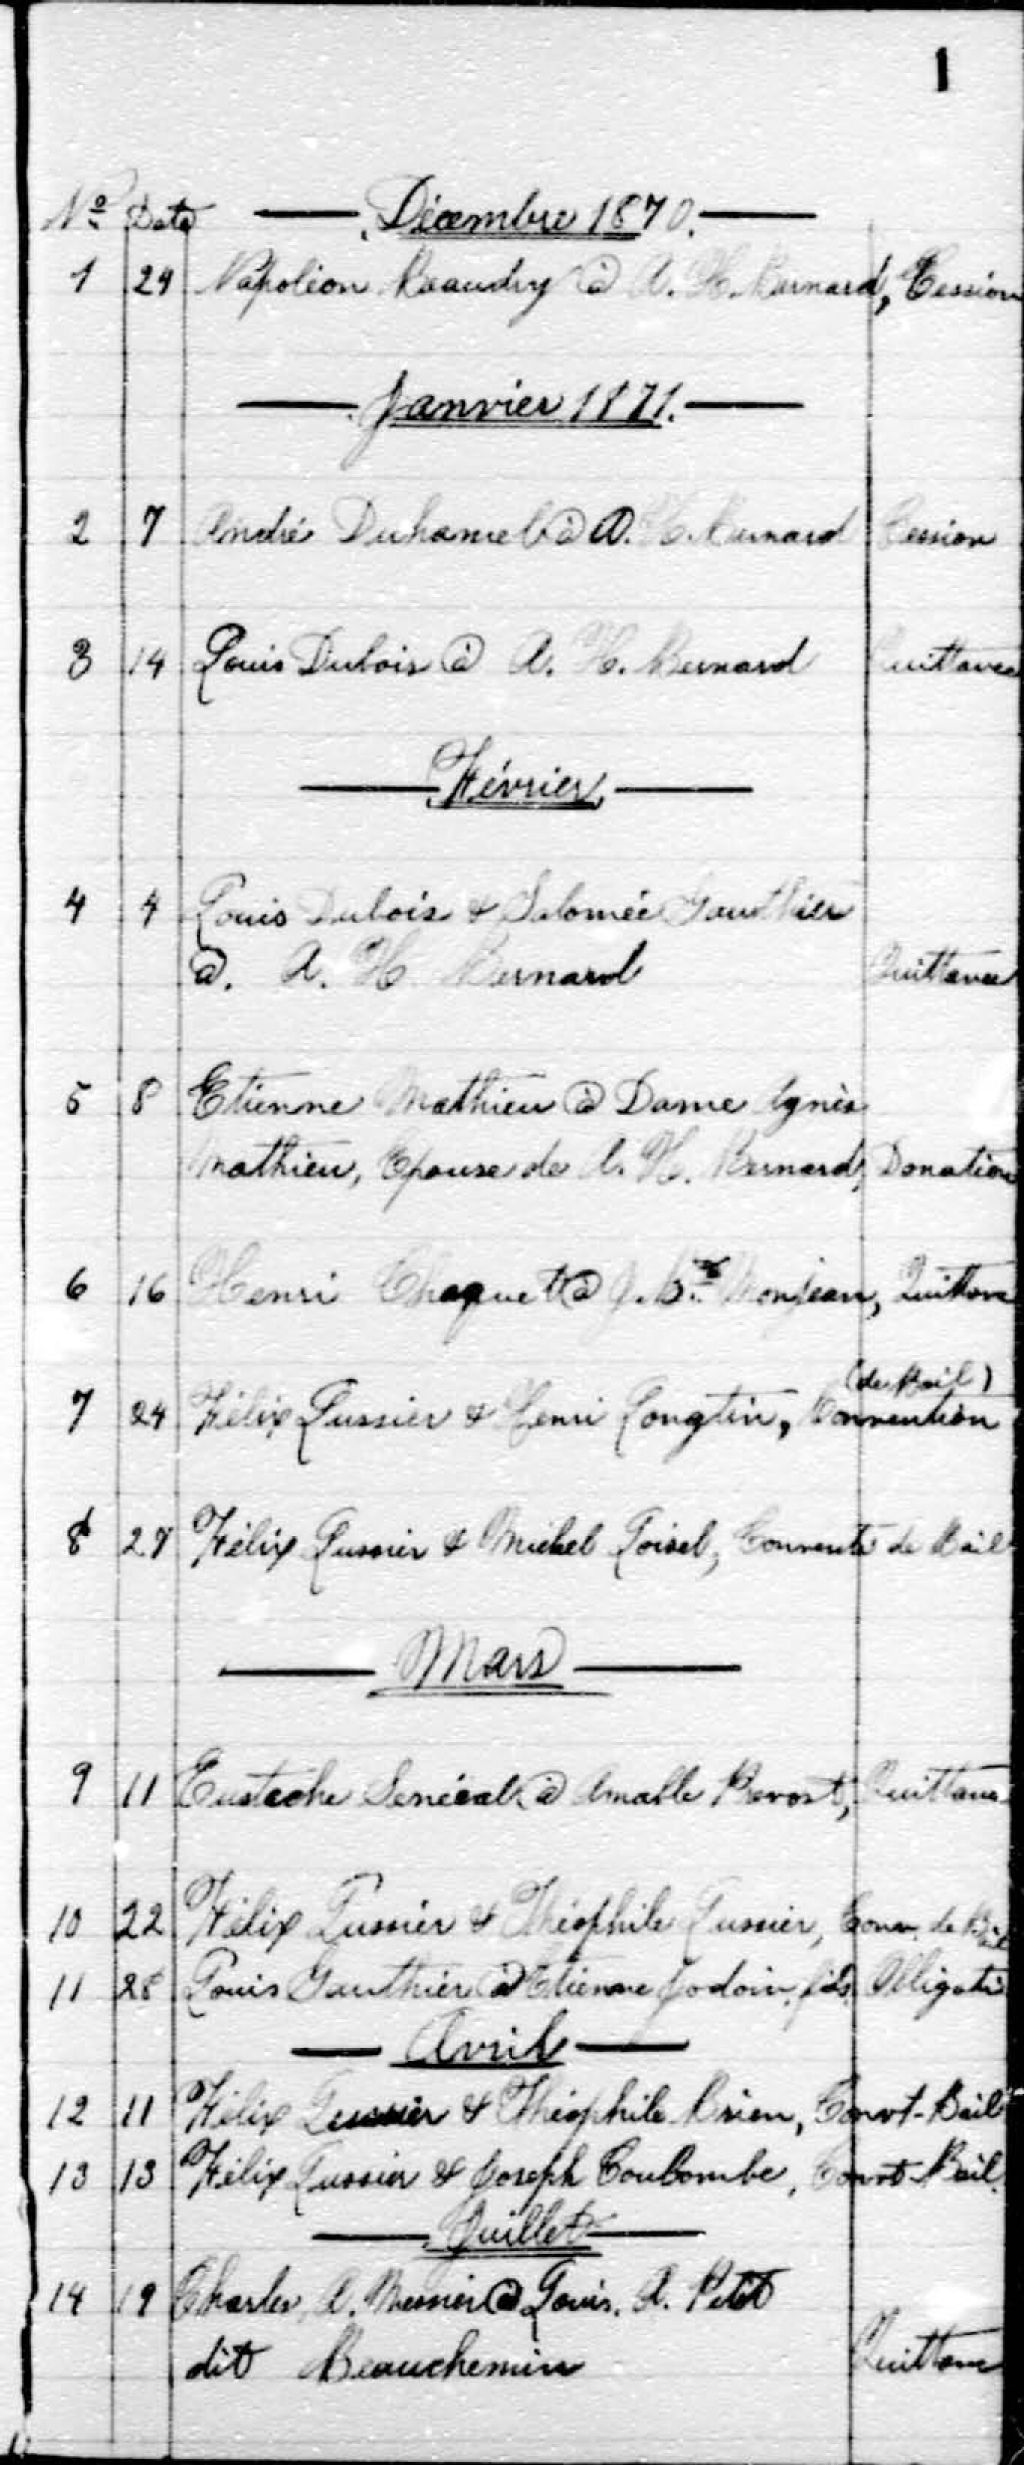 1
No Date Décembre 1870.
1 29 Napoléon Beaudry à A. H. Bernard, Cession
Janvier 1871.
2 7 André Duhamel à A. H. Bernard Cession
3 14 Louis Dubois à A. H. Bernard Quittance
Février
4 4 Louis Dubois & Salomée Gauthier
à. A. H. Bernard Quittance
5 8 Etienne Mathieu à Dame Agnès
Mathieu, Epouse de A. H. Bernard, Donation
6 16 Henri Choquet à J. Bte Monjean, Quittance
(de Bail)
7 24 Félix Lussier & Henri Longtin, Convention
8 28 Félix Lussier & Michel Loisel, Conventi de Bail
Mars
9 11 Eustache Senécal à Amable Prevost, Quittance
10 22 Félix Lussier & Théophile Lussier, Conv. de Bail
11 28 Louis Gauthier à Etienne Jodoin, fils, Obligati
Avril
12 11 Félix Lussier & Théophile Brien, Convt-Bail
13 13 Félix Lussier & Joseph Coulombe, Convt-Bail.
Juillet
14 19 Charles A. Messier à Louis. A. Petit
dit Beauchemin Quittance